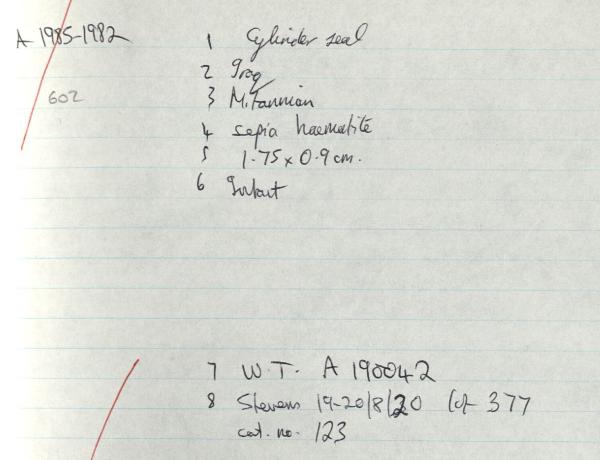 A 1985-1982
1 Cylinder seal
2 Iraq
602
3 Mitannian
4 sepia haematite
5 1.75 x 0.9 cm.
6 Intact
7 W.T. A 190042
8 Stevens 19-20/8/20 Lot 377
cat. no. 123